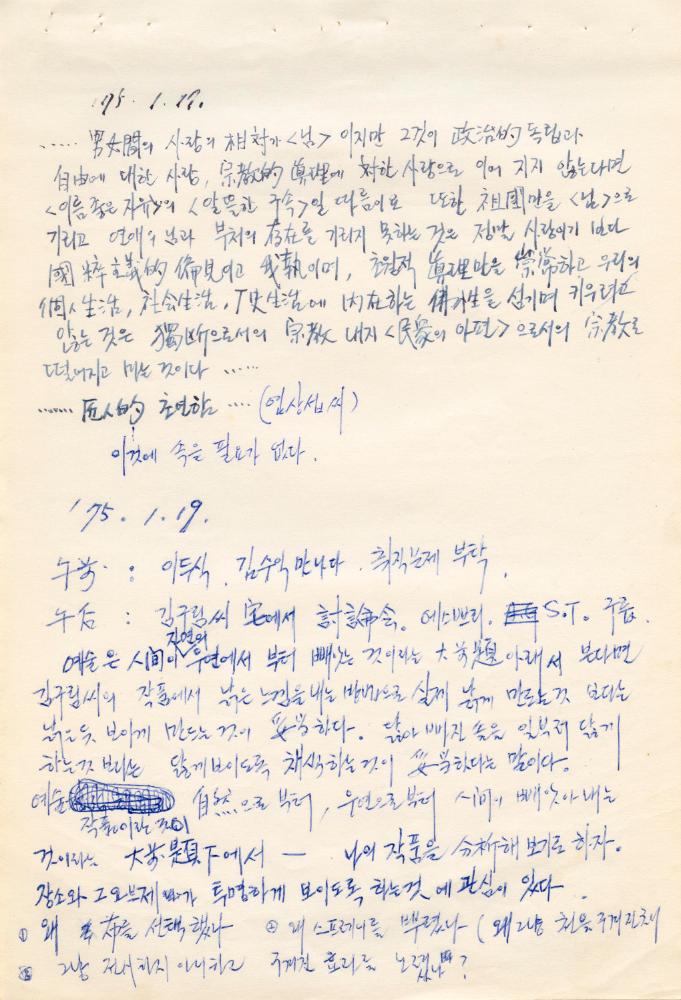 '75. 1. 17.
..... 男女間의 사랑의 相対가 <님> 이지만 그것이 政治的 독립과
自由에 대한 사랑, 宗教的 眞理에 対한 사랑으로 이어 지지 않는다면
<이름좋은 자유>의 <알뜰한 구속>일 따름이요 또한 祖国만을 <님>으로
기리고 연애의 님과 부처의 존재를 기리지 못하는 것은 정말 사랑이기 보다
國粹主義的 偏見이고 我執이며, 초월적 眞理만을 崇尚하고 우리의
個人生活, 社会生活, 역史生活에 内在하는 佛性을 섬기며 키우려고
않는 것은 獨断으로서의 宗教 내지 <民衆의 아편>으로서의 宗教로
떨어지고 마는 것이다 ......
...... 巨人的 초연함 .... (염상섭씨)
이것에 속을 필요가 없다.
'75. 1. 19.
午前 : 이두식. 김수익 만나다. 취직문제 부탁.
午后 : 김구림씨 宅에서 討論会. 에스쁘리. S.T. 구룹.
예술은 人間이 자연의 우연에서 부터 빼앗는 것이라는 大前題 아래서 본다면
김구림씨의 작품에서 낡은 느낌을 내는 방법으로 실제 낡게 만드는것 보다는
낡은듯 보이게 만드는 것이 妥当하다. 닳아 빠진 솦을 일부러 닳게
하는것 보다는 닳게보이도록 채색하는것이 妥当하다는 말이다.
예술 作품이라는 것이 自然으로 부터, 우연으로부터 人間이 빼앗아 내는
것이라는 大前題下에서 — 나의 작품을 分析해 보기로 하자.
장소와 그 오브제 따가 투명하게 보이도록 하는것에 관심이 있다.
① 왜 布를 선택했나 ② 왜 스프레이를 뿌렸나 (왜 그냥 천을 구겨진채
그냥 전시하지 아니하고 구겨진 효과를 노렸나?